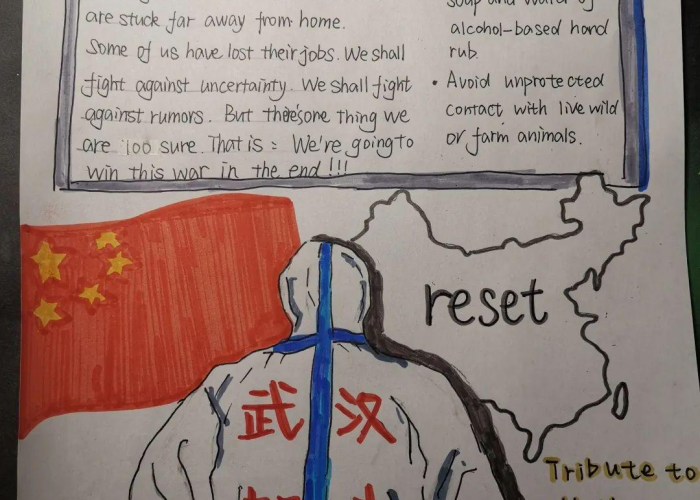 are stuck far away from home.
Some of us have lost their jobs. We shall
fight against uncertainty. We shall fight
against rumors. But there's one thing we
are 100 sure. That is: We're going to
win this war in the end!!!
soap and water or
alcohol-based hand
rub.
• Avoid unprotected
contact with live wild
or farm animals.
reset
武汉
Tribute to